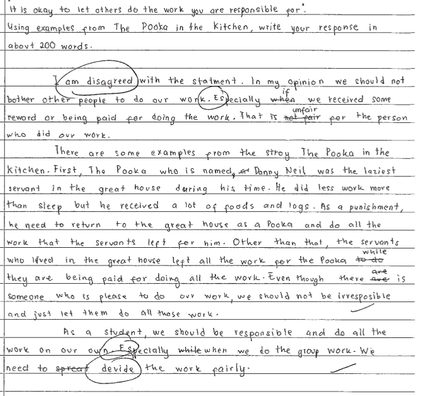 It is okay to let others do the work you are responsible for".
Using examples from The Pooka in the Kitchen, write your response in
about 200 words.
I am disagreed with the statment. In my opinion we should not
bother other people to do our work. Especially when if we received some
reward or being paid for doing the work. That is not fair unfair for the person
who did our work.
There are some examples from the stroy The Pooka in the
Kitchen. First, The Pooka who is named, Donny Neil was the laziest
servant in the great house during his time. He did less work more
than sleep but he received a lot of foods and logs. As a punishment,
he need to return to the great house as a Pooka and do all the
work that the servants left for him. Other than that, the servants
who lived in the great house left all the work for the Pooka to do while
they are being paid for doing all the work. Even though there are are is
someone who is please to do our work, we should not be irresposible
and just let them do all those work.
As a student, we should be responsible and do all the
work on our own. Especially while when we do the group work. We
need to spreat devide the work fairly.